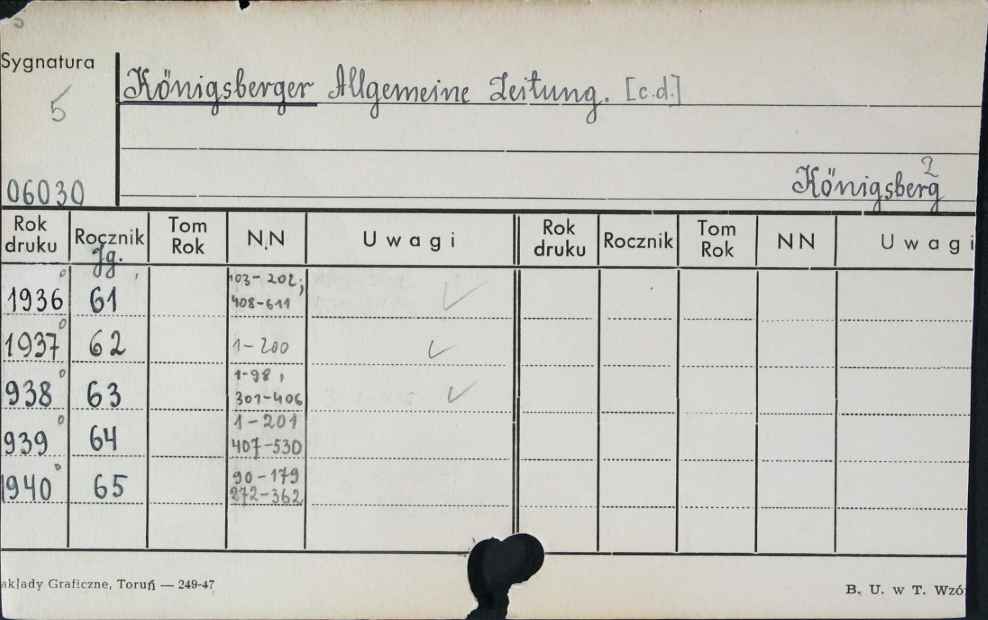 Sygnatura
5
Königsberger Allgemeine Zeitung. [c.d.]
2
Königsberg
06030
Rok druku Rocznik Jg. Tom Rok N.N Uwagi Rok druku Rocznik Tom Rok NN Uwagi
1936 61 103-202; 408-611
1937 62 1-200
938 63 1-98, 301-406
939 64 1-201 407-530
1940 65 90-179 272-362
akłady Graficzne, Toruń — 249-47
B. U. w T. Wzó